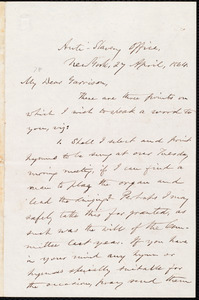 Anti-Slavery Office,
New York, 27 April, 1844.
My Dear Garrison,
There are three points on
which I wish to speak a word to
you, viz:
1. Shall I select and print
hymns to be sung at our Tuesday
morning meeting, if I can find a
man to play the organ and
lead the singing? Perhaps I may
safely take this for granted, as
such was the rule of the Com-
mittee last year. If you have
in your mind any hymn or
hymns specially suitable for
the occasion, pray send them